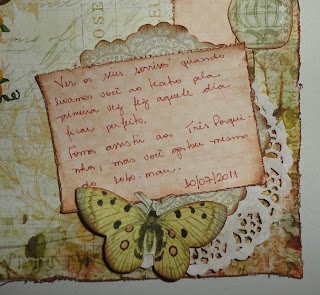 Ver o seu sorriso quando
levamos você ao teatro pela
primeira vez fez aquele dia
ficar perfeito.
Fomos assistir aos Três Porqui-
nhos, mas você gostou mesmo
do lobo mau..
10/07/2011